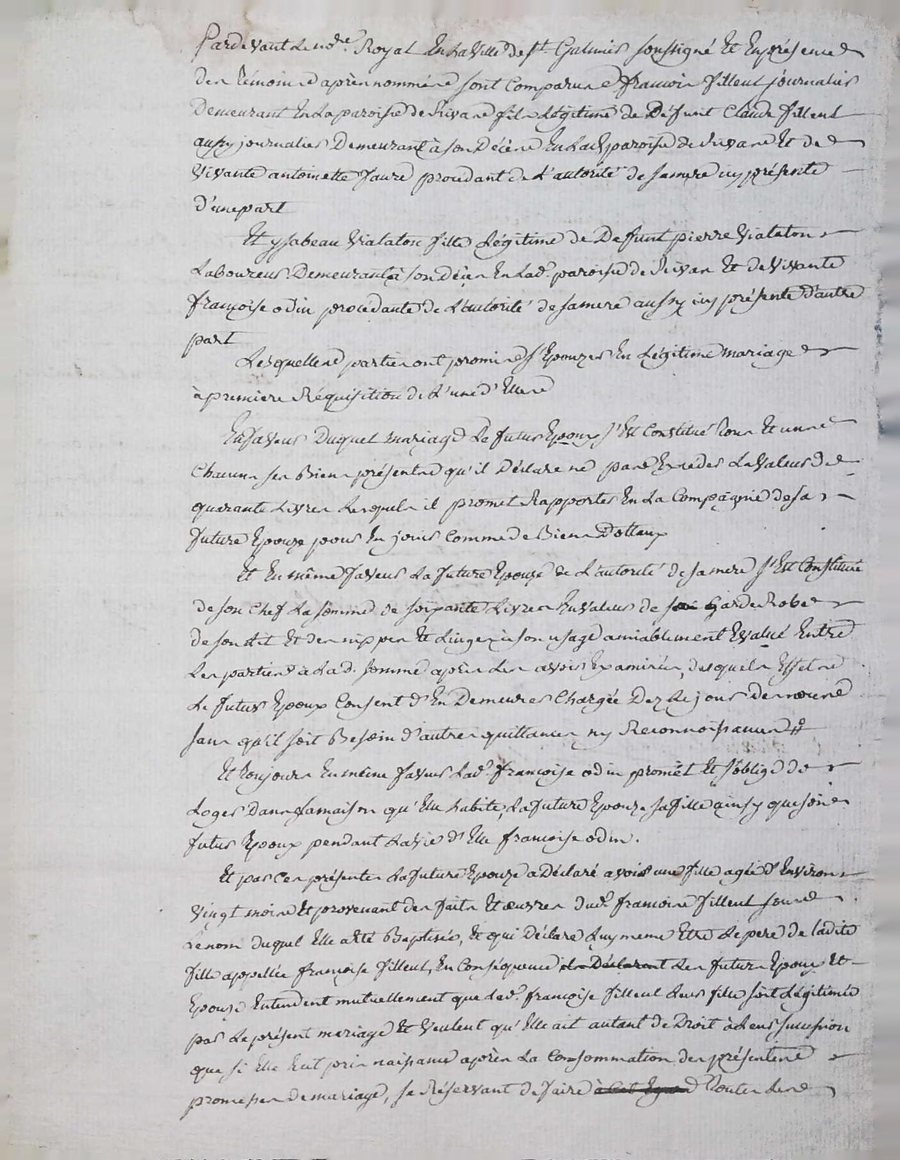 Pardevant Le no.re Royal En La Ville de St. Galmier soussigné Et En présence
des témoins après nommés sont Comparus françois filleul journalier
Demeurant En La paroisse de Rivas fils Légitime de Défunt Claude filleul
aussy journalier Demeurant à son Décès En Lad. paroisse de Rivas Et de
Vivante antoinette faure procedant de L'autorité de sa mere icy présente
d'une part
Et ysabeau Viataton fille Légitime de Defunt pierre Viataton
Laboureur Demeurant à son Décès En Lad. paroisse de Rivas Et de Vivante
françoise odin procédante de L'autorité de sa mere aussy icy présente d'autre
part
Lesquelles parties ont promis s'Epouzer En Légitime mariage
à premiere Réquisition de L'une d'Elles
En faveur Duquel mariage Le futur Epoux s'Est Constitué tous Et uns
Chacuns ses Biens présents qu'il Déclare ne pas Exceder La Valeur de
quarante Livres Lesquels il promet Rapporter En La Compagnie de sa
future Epouze pour En jouir Comme de Biens Dottaux
Et En même faveur La future Epouze de L'autorité de sa mere s'Est Constitué
de son Chef La somme de soixante Livres En valeur de Garde Robe
de son Lit Et des nippes Et Linges à son usage amiablement Evalué Entre
Les parties à Lad. somme après Les avoir Examinés, desquels Effets
Le futur Epoux Consent d'En Demeurer Chargée Dez Le jour des noces
sans qu'il soit Besoin d'autres quittances ny Reconnoissances
Et toujours En même faveur Lad. françoise odin promet Et s'oblige de
Loger Dans sa maison qu'Elle habite, La future Epouze sa fille ainsy que son
futur Epoux pendant La vie d'Elle françoise odin.
Et par Ces présentes La future Epouze a Déclaré avoir une fille agée d'Environ
Vingt mois Et provenant des faits Et œuvres dud. françois filleul sous
Le nom duquel Elle a Eté Baptisée, Et qui Déclare Luy meme Etre Le pere de ladite
fille appellée françoise filleul, En Conséquence Les futurs Epoux Et
Epouze Entendent mutuellement que Lad. françoise filleul Leur fille soit Légitimée
par Le présent mariage Et Veulent qu'Elle ait autant de Droit à Leur succession
que si Elle Eut pris naissance après La Consommation des présentes
promesses de mariage, se Réservant de faire toutes Les